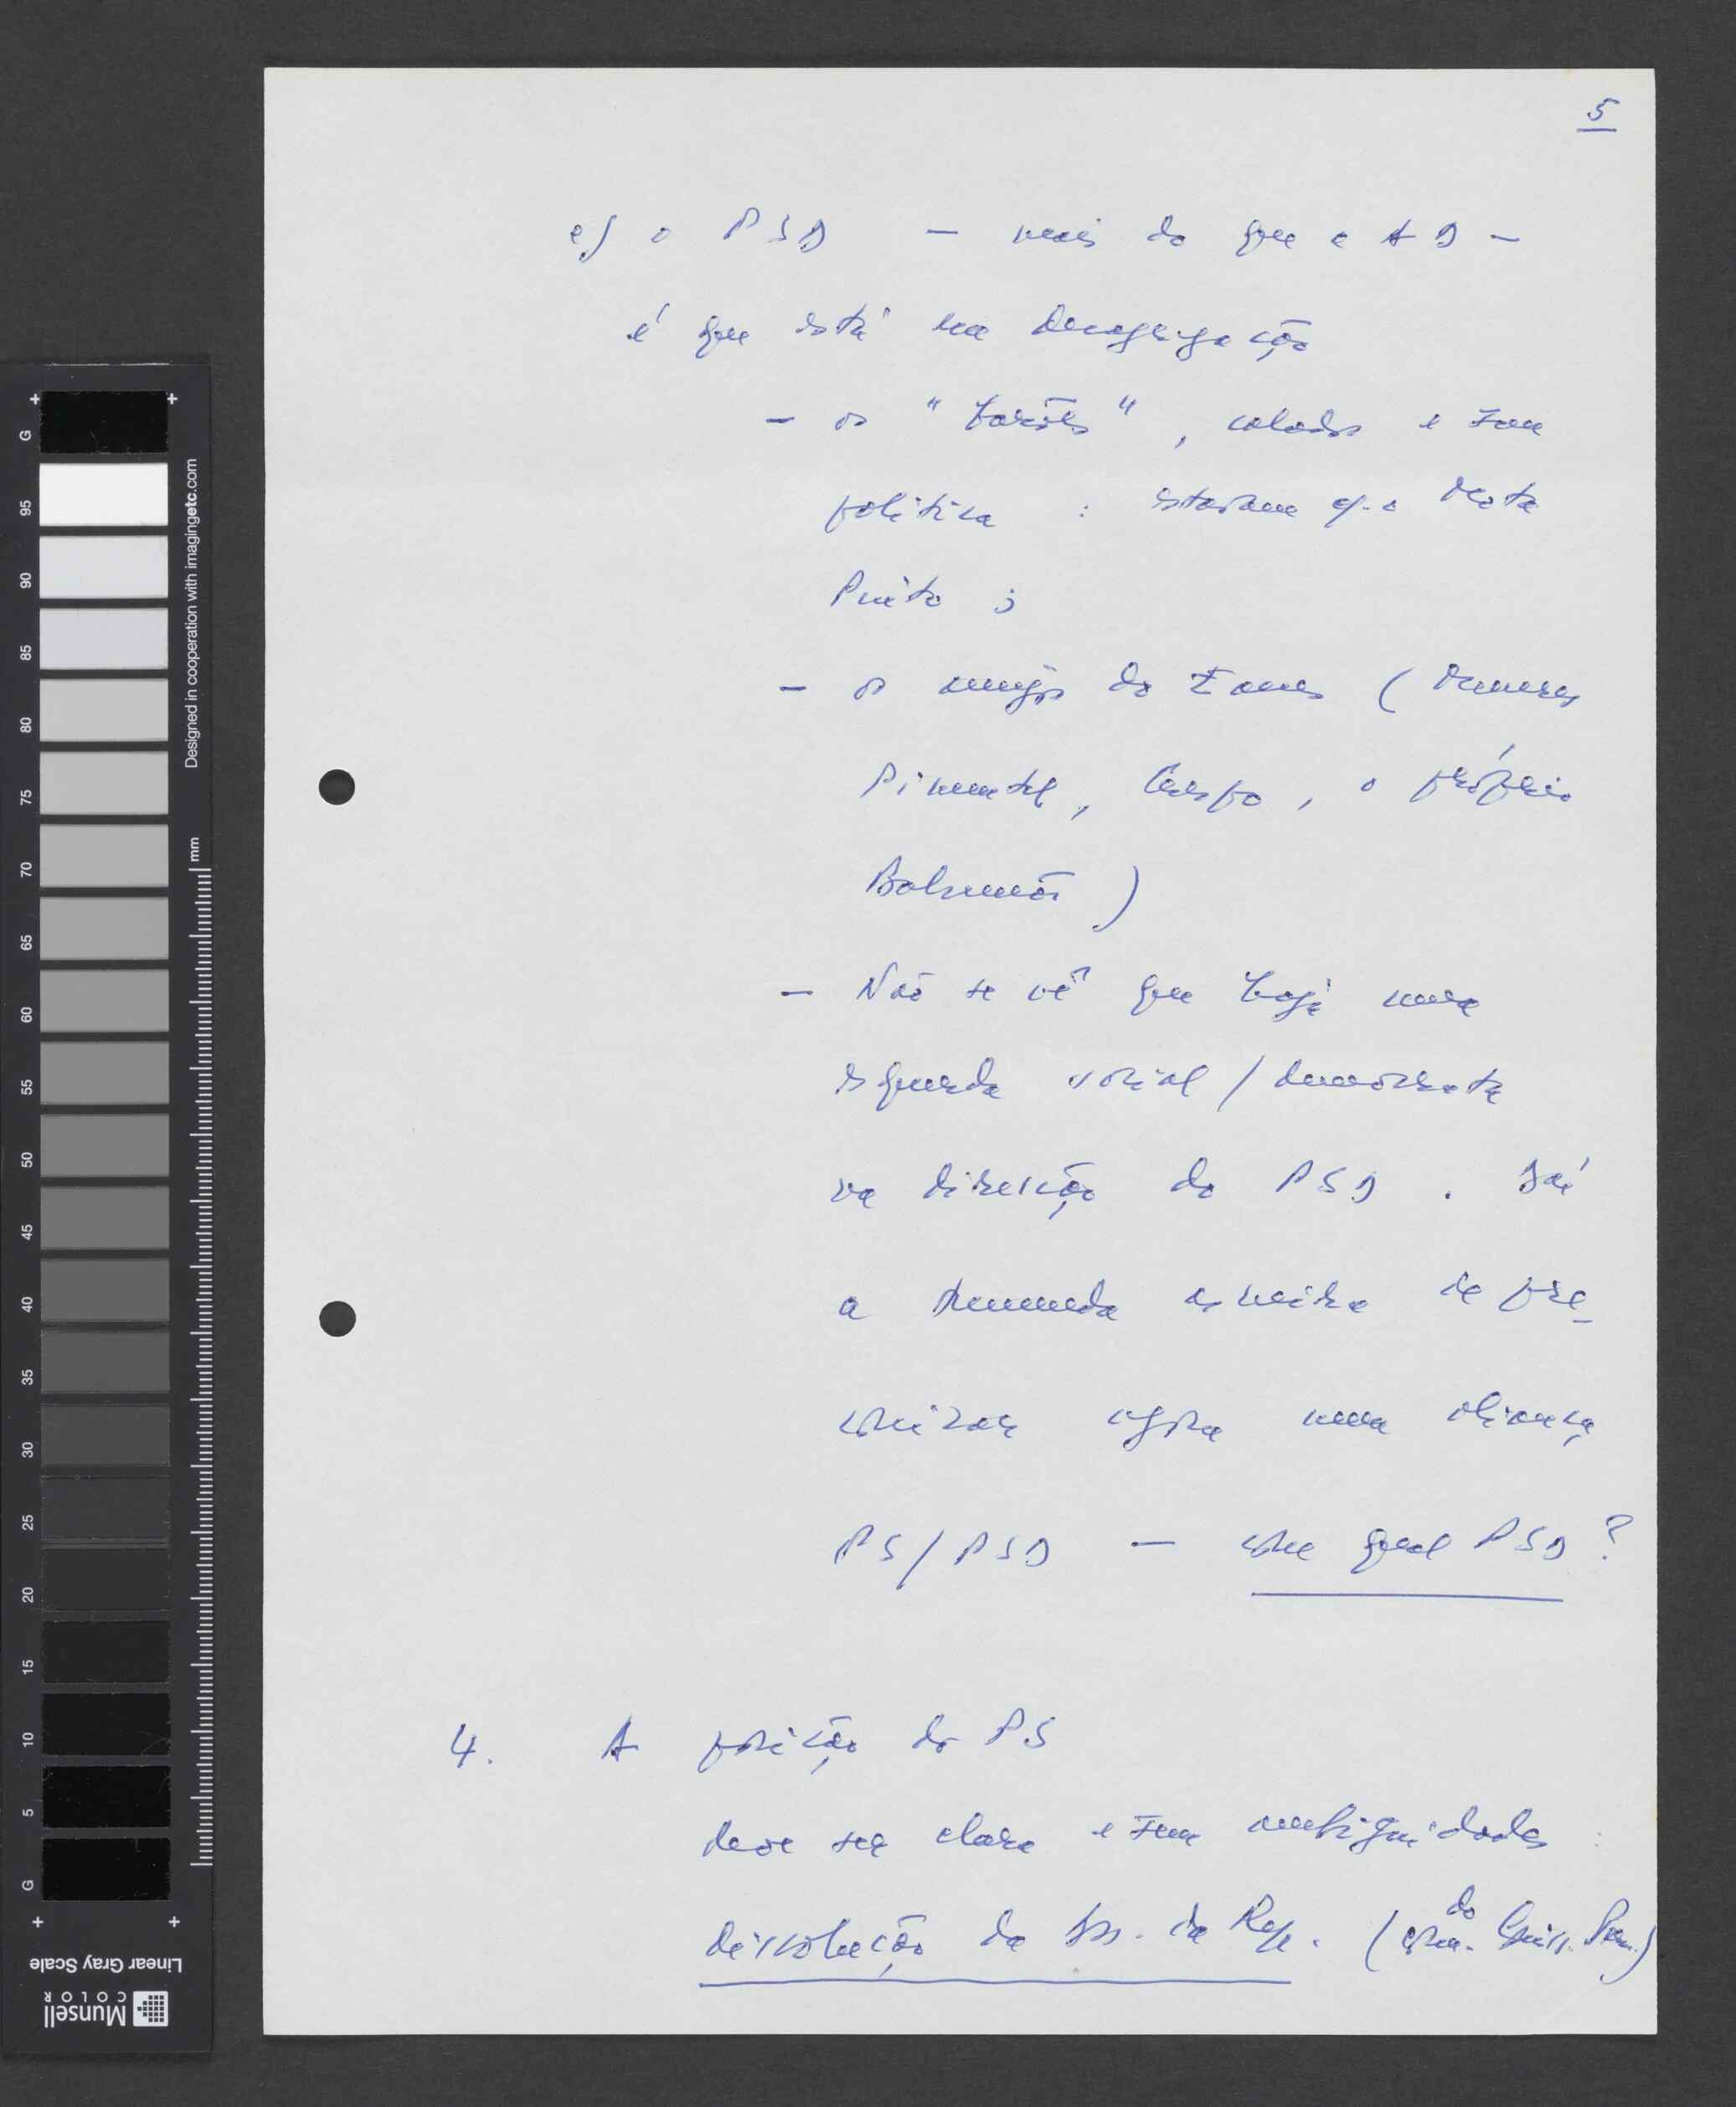 5
e) o PSD — mais do que a AD —
é que está em desagregação
— os "barões", calados e sem
política : estavam c/ o Mota
Pinto ;
— os amigos do Eanes ( Meneres
Pimentel, Crespo, o próprio
Balsemão )
— Não se vê que haja uma
esquerda social / democrata
na direcção do PSD . Daí
a tremenda asneira de pre-
conizar agora uma aliança
PS/PSD — com qual PSD ?
4. A posição do PS
deve ser clara e sem ambiguidades :
dissolução da Ass. da Rep. ( do Com. Perm.)
G
95
90
85
80
75
70
65
60
55
50
45
40
35
30
25
20
15
10
5
G
mm
Designed in cooperation with imagingetc.com
Linear Gray Scale
Munsell
COLOR